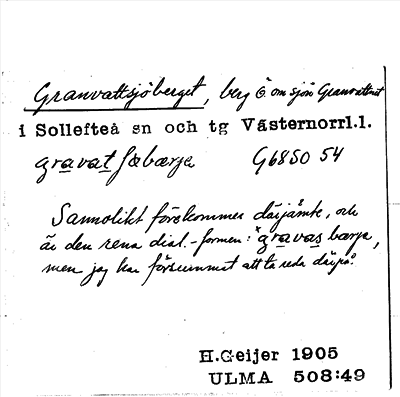 Granvattsjöberget, berg ö om sjön Granvattnet
i Sollefteå sn och tg Västernorrl.l.
gravatſobærjɛ G6850 54
Sannolikt förekommer därjämte, och
är den rena dial.-formen: *gravasbærjɛ,
men jag har försummat att ta reda därpå.
H.Geijer 1905
ULMA 508:49